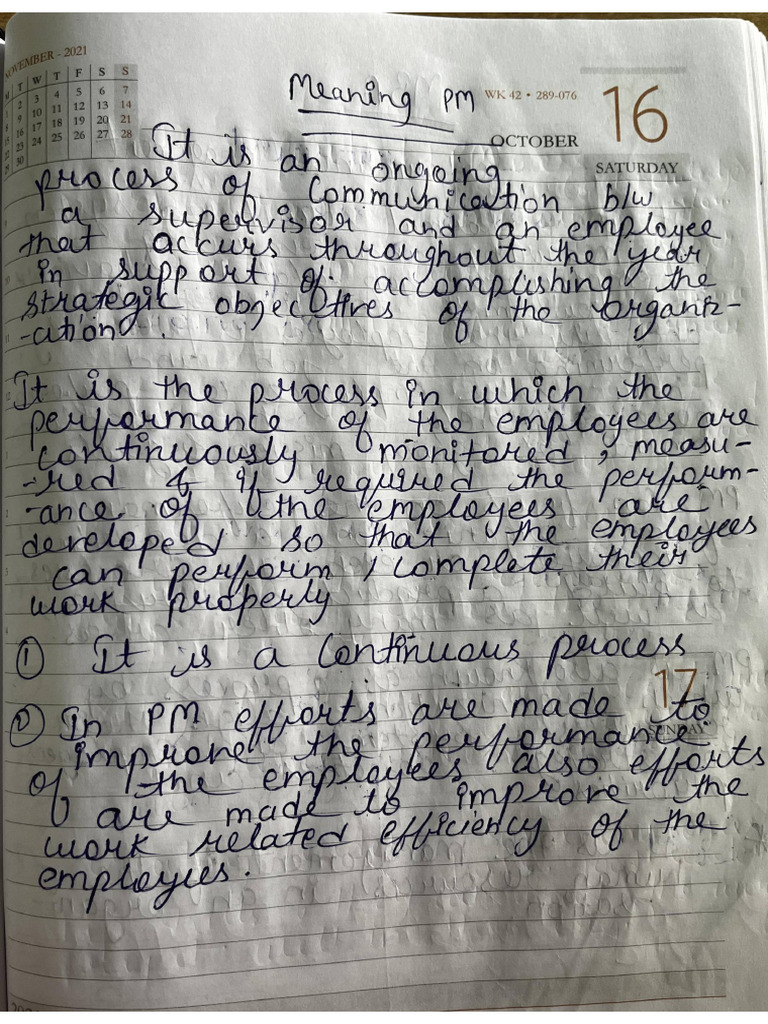 NOVEMBER - 2021
M T W T F S S
1 2 3 4 5 6 7
8 9 10 11 12 13 14
15 16 17 18 19 20 21
22 23 24 25 26 27 28
29 30
Meaning PM
WK 42 • 289-076
16
OCTOBER
SATURDAY
It is an ongoing
process of Communication b/w
a supervisor and an employee
that accurs throughout the year
in support of accomplishing the
strategic objectives of the organiz-
-ation.
It is the process in which the
performance of the employees are
continuously monitored, measu-
-red & if required the perform-
-ance of the employees are
developed so that the employees
can perform / complete their
work properly
① It is a Continuous process
17
SUNDAY
② In PM efforts are made to
improve the performance
of the employees also efforts
are made to improve the
work related efficiency of the
employees.